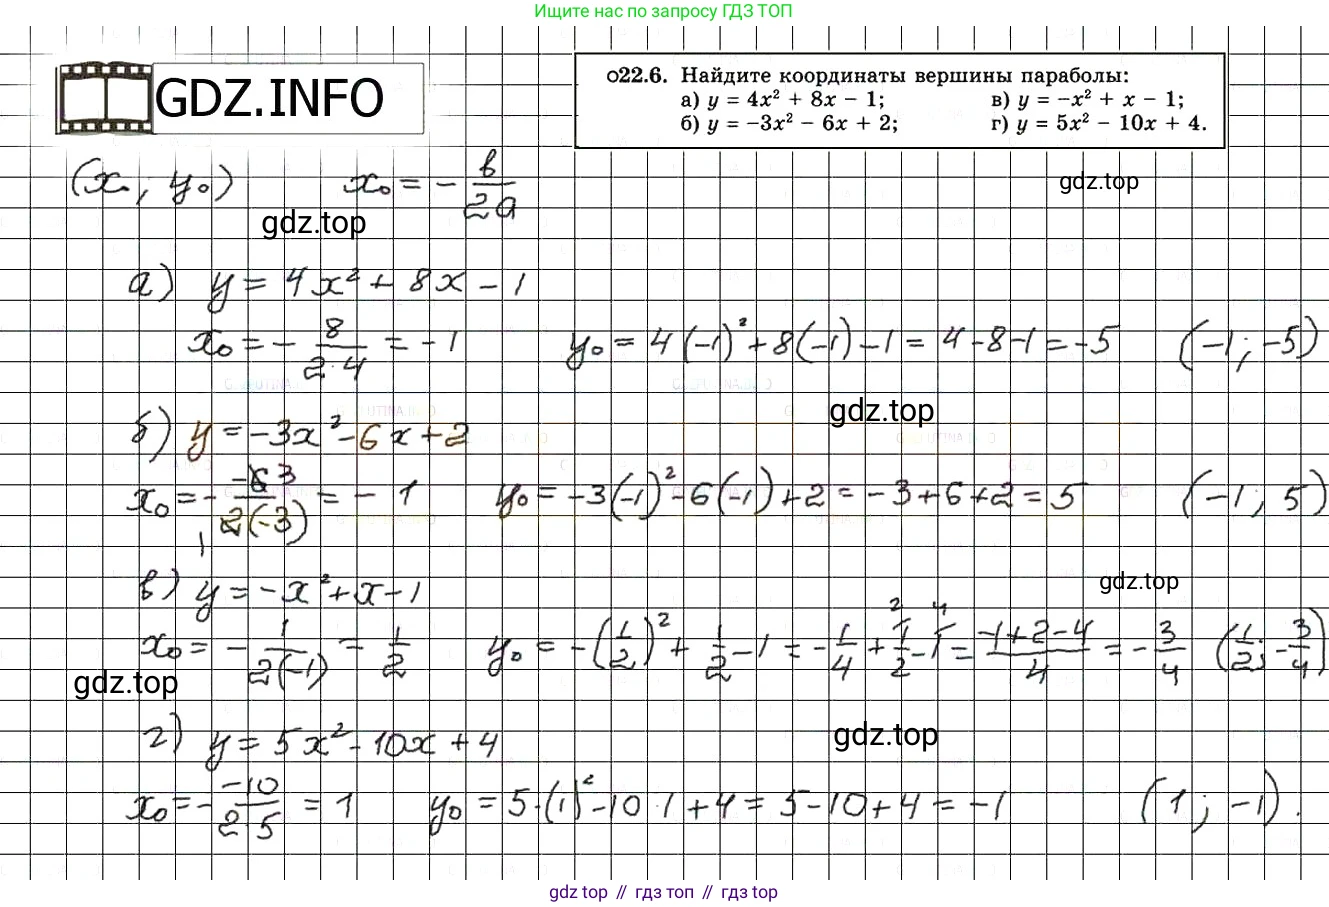 Ищите нас по запросу ГДЗ ТОП
GDZ.INFO
о22.6. Найдите координаты вершины параболы:
а) y = 4x² + 8x − 1; в) y = −x² + x − 1;
б) y = −3x² − 6x + 2; г) y = 5x² − 10x + 4.
(x₀; y₀) x₀ = − в/2a
gdz.top
gdz.top
а) y = 4x² + 8x − 1
x₀ = − 8/(2·4) = −1 y₀ = 4(−1)² + 8(−1) − 1 = 4 − 8 − 1 = −5 (−1; −5)
gdz.top
б) y = −3x² − 6x + 2
x₀ = − −6 3/(2(−3)) 1 = − 1 y₀ = −3(−1)² − 6(−1) + 2 = −3 + 6 + 2 = 5 (−1; 5)
gdz.top
в) y = −x² + x − 1
x₀ = − 1/(2(−1)) = 1/2 y₀ = −(1/2)² + 1/2 − 1 = −1/4 + ²1/2 − ⁴1 = (−1+2−4)/4 = −3/4 (1/2; −3/4)
gdz.top
г) y = 5x² − 10x + 4
gdz.top
x₀ = − −10/(2·5) = 1 y₀ = 5·(1)² − 10·1 + 4 = 5 − 10 + 4 = −1 (1; −1).
gdz top // гдз топ // gdz top